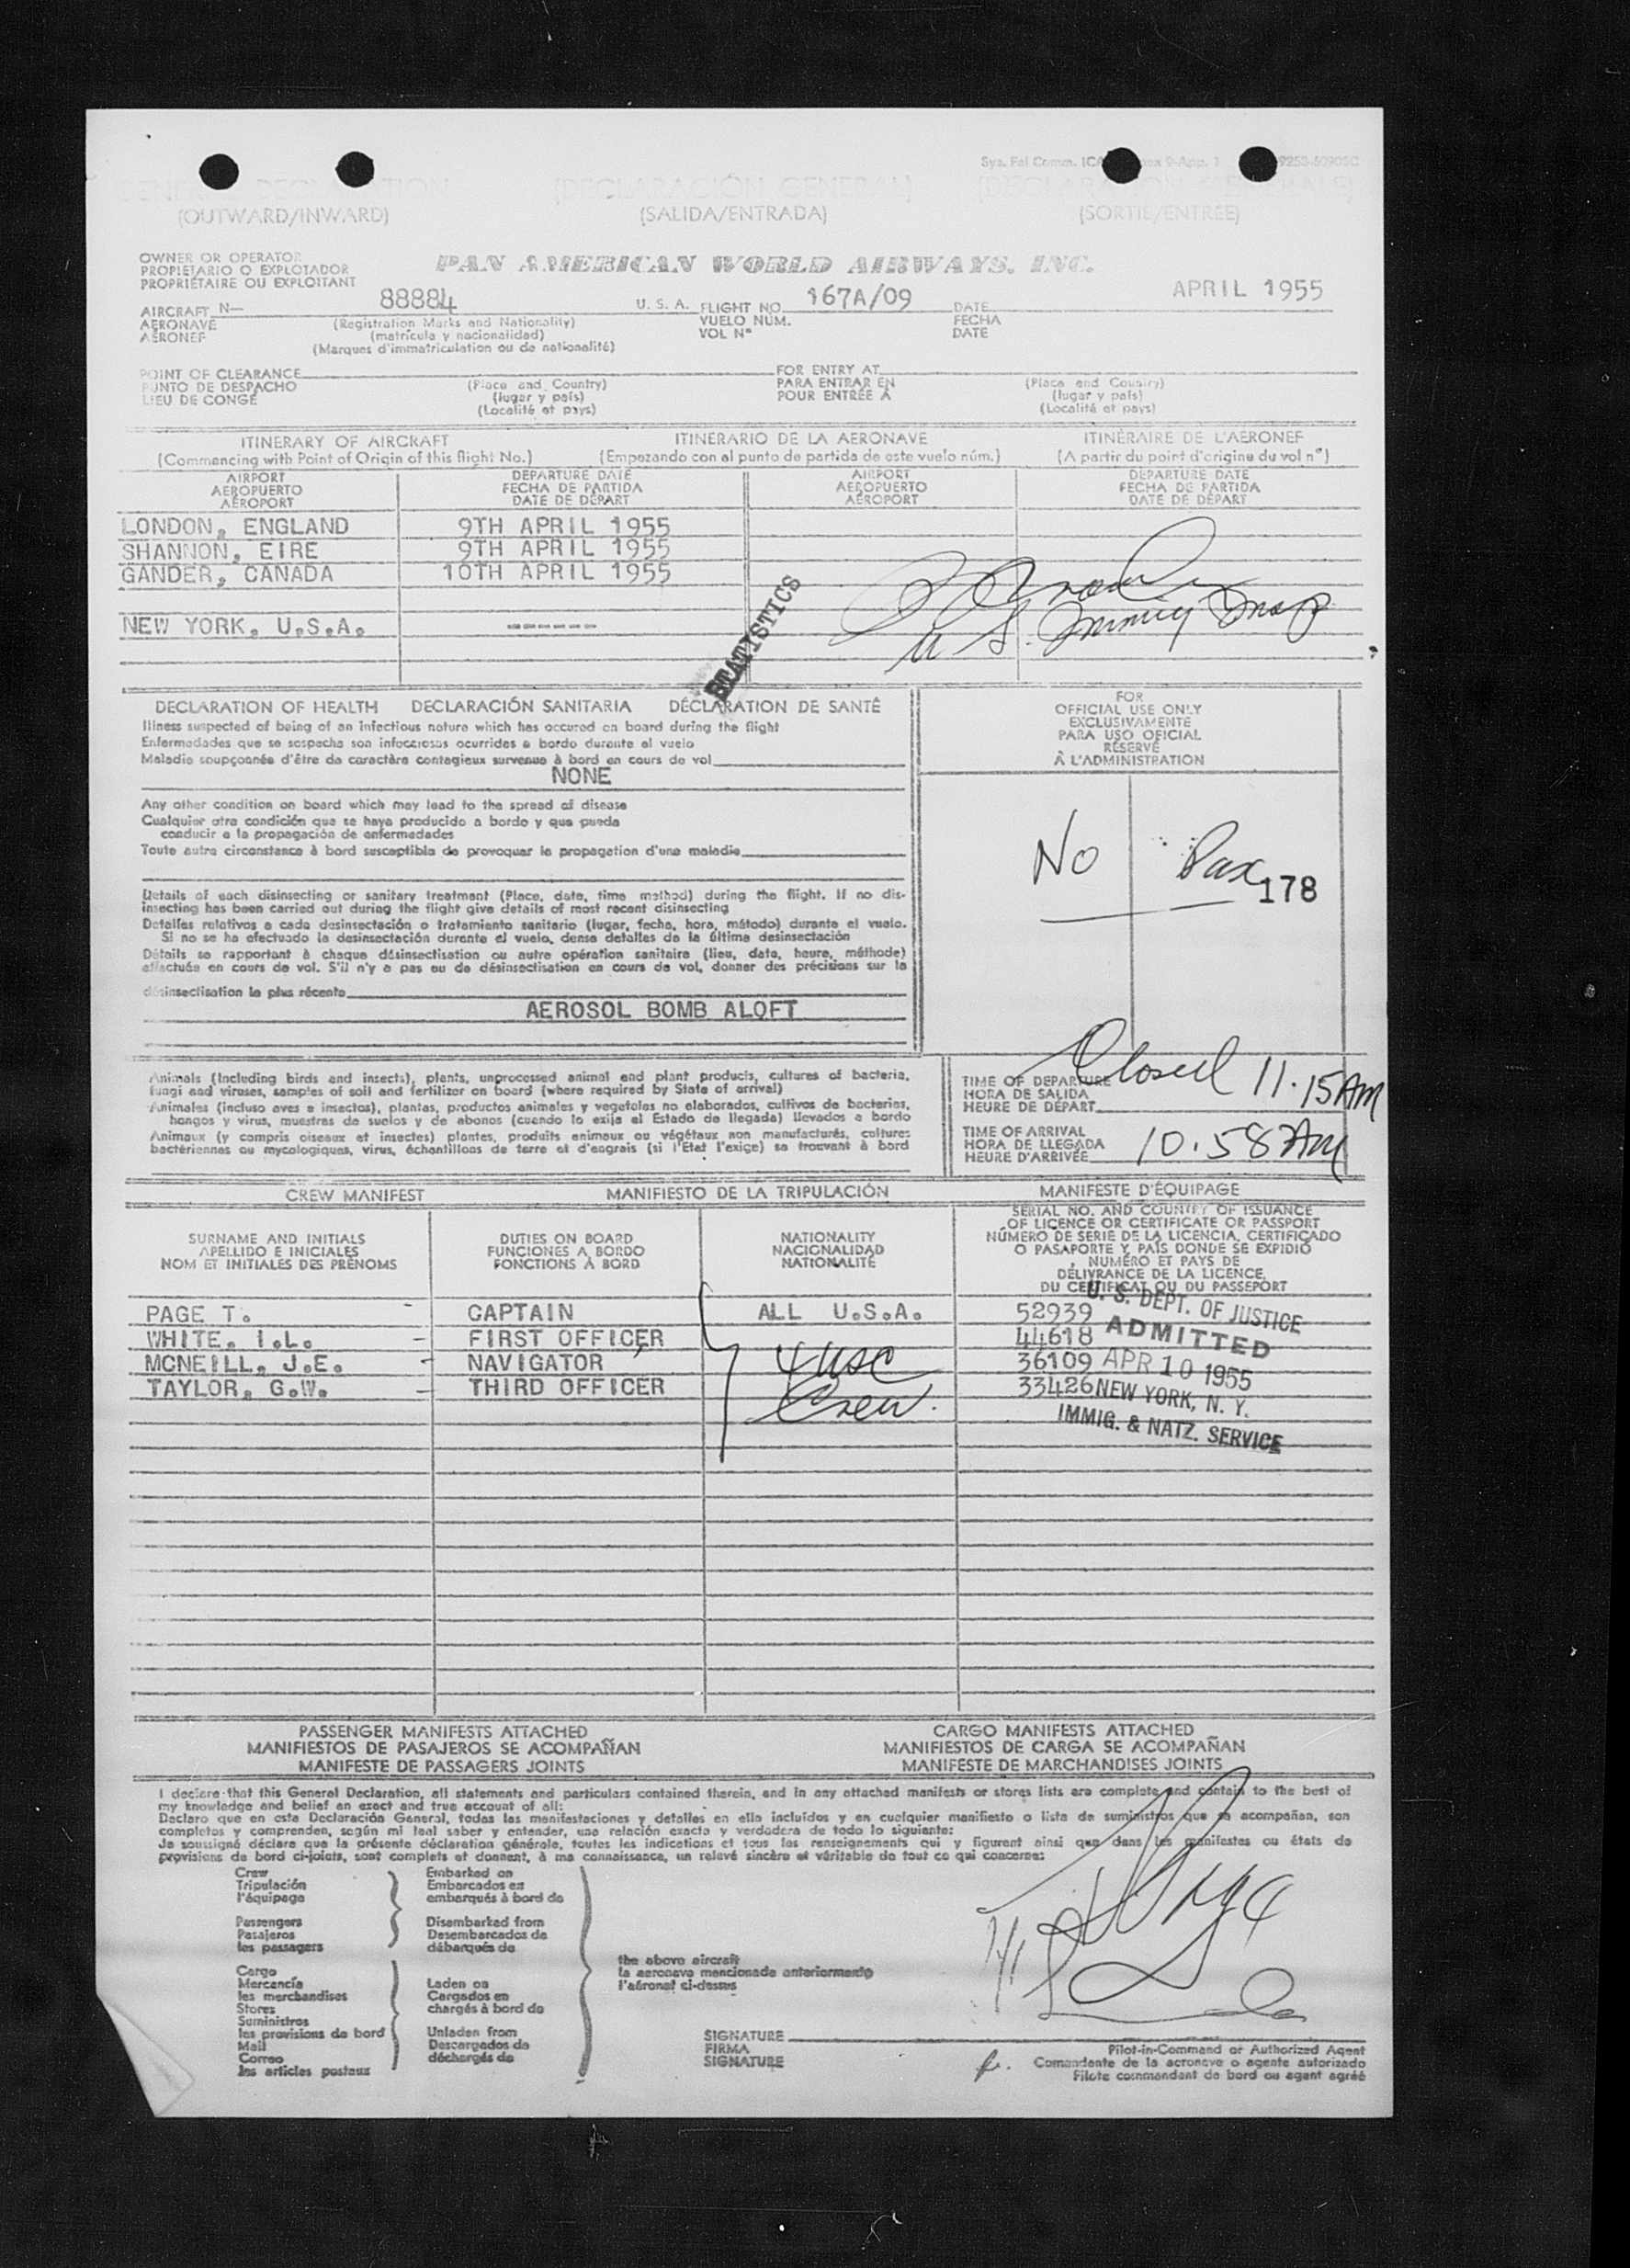 (OUTWARD/INWARD) (SALIDA/ENTRADA) (SORTIE/ENTRÉE)
OWNER OR OPERATOR
PROPIETARIO O EXPLOTADOR
PROPRIÉTAIRE OU EXPLOITANT
PAN AMERICAN WORLD AIRWAYS, INC.
AIRCRAFT N— 88884 U. S. A. FLIGHT NO. 167A/09 DATE APRIL 1955
AERONAVE (Registration Marks and Nationality) VUELO NÚM. FECHA
AÉRONEF (matrícula y nacionalidad) VOL N° DATE
(Marques d'immatriculation ou de nationalité)
POINT OF CLEARANCE FOR ENTRY AT
PUNTO DE DESPACHO (Place and Country) PARA ENTRAR EN (Place and Country)
LIEU DE CONGÉ (lugar y país) POUR ENTRÉE À (lugar y país)
(Localité et pays) (Localité et pays)
ITINERARY OF AIRCRAFT ITINERARIO DE LA AERONAVE ITINÉRAIRE DE L'AÉRONEF
(Commencing with Point of Origin of this flight No.) (Empezando con al punto de partida de este vuelo núm.) (A partir du point d'origine du vol n°)
AIRPORT DEPARTURE DATE AIRPORT DEPARTURE DATE
AEROPUERTO FECHA DE PARTIDA AEROPUERTO FECHA DE PARTIDA
AÉROPORT DATE DE DÉPART AÉROPORT DATE DE DÉPART
LONDON, ENGLAND 9TH APRIL 1955
SHANNON, EIRE 9TH APRIL 1955
GANDER, CANADA 10TH APRIL 1955
NEW YORK, U.S.A. ------
U S. Immig Insp
STATISTICS
DECLARATION OF HEALTH DECLARACIÓN SANITARIA DÉCLARATION DE SANTÉ
Illness suspected of being of an infectious nature which has occured on board during the flight
Enfermedades que se sospecha son infecciosas ocurridas a bordo durante el vuelo
Maladie soupçonnée d'être de caractère contagieux survenue à bord en cours de vol
NONE
Any other condition on board which may lead to the spread of disease
Cualquier otra condición que se haya producido a bordo y que pueda
conducir a la propagación de enfermedades
Toute autre circonstance à bord susceptible de provoquer la propagation d'une maladie
Details of each disinsecting or sanitary treatment (Place, date, time method) during the flight. If no dis-
insecting has been carried out during the flight give details of most recent disinsecting
Detalles relativos a cada desinsectación o tratamiento sanitario (lugar, fecha, hora, método) durante el vuelo.
Si no se ha efectuado la desinsectación durante el vuelo, dense detalles de la última desinsectación
Détails se rapportant à chaque désinsectisation ou autre opération sanitaire (lieu, date, heure, méthode)
effectuée en cours de vol. S'il n'y a pas eu de désinsectisation en cours de vol, donner des précisions sur la
désinsectisation la plus récente
AEROSOL BOMB ALOFT
FOR
OFFICIAL USE ONLY
EXCLUSIVAMENTE
PARA USO OFICIAL
RÉSERVÉ
À L'ADMINISTRATION
No Pax 178
Animals (Including birds and insects), plants, unprocessed animal and plant products, cultures of bacteria,
fungi and viruses, samples of soil and fertilizer on board (where required by State of arrival)
Animales (incluso aves e insectos), plantas, productos animales y vegetales no elaborados, cultivos de bacterias,
hongos y virus, muestras de suelos y de abonos (cuando lo exija el Estado de llegada) llevados a bordo
Animaux (y compris oiseaux et insectes) plantes, produits animaux ou végétaux non manufacturés, cultures
bactériennes ou mycologiques, virus, échantillons de terre et d'engrais (si l'État l'exige) se trouvant à bord
TIME OF DEPARTURE Closed 11.15 AM
HORA DE SALIDA
HEURE DE DÉPART
TIME OF ARRIVAL
HORA DE LLEGADA 10.58 AM
HEURE D'ARRIVÉE
CREW MANIFEST MANIFIESTO DE LA TRIPULACIÓN MANIFESTE D'ÉQUIPAGE
SURNAME AND INITIALS
APELLIDO E INICIALES
NOM ET INITIALES DES PRÉNOMS
DUTIES ON BOARD
FUNCIONES A BORDO
FONCTIONS À BORD
NATIONALITY
NACIONALIDAD
NATIONALITÉ
SERIAL NO. AND COUNTRY OF ISSUANCE
OF LICENCE OR CERTIFICATE OR PASSPORT
NÚMERO DE SERIE DE LA LICENCIA, CERTIFICADO
O PASAPORTE Y PAÍS DONDE SE EXPIDIÓ
NUMÉRO ET PAYS DE
DÉLIVRANCE DE LA LICENCE,
DU CERTIFICAT OU DU PASSEPORT
PAGE T. - CAPTAIN ALL U.S.A. 52939
WHITE, I.L. - FIRST OFFICER 44618
MCNEILL, J.E. - NAVIGATOR 36109
TAYLOR, G.W. - THIRD OFFICER 33426
4 USC
Crew.
U. S. DEPT. OF JUSTICE
ADMITTED
APR 10 1955
NEW YORK, N. Y.
IMMIG. & NATZ. SERVICE
PASSENGER MANIFESTS ATTACHED CARGO MANIFESTS ATTACHED
MANIFIESTOS DE PASAJEROS SE ACOMPAÑAN MANIFIESTOS DE CARGA SE ACOMPAÑAN
MANIFESTE DE PASSAGERS JOINTS MANIFESTE DE MARCHANDISES JOINTS
I declare that this General Declaration, all statements and particulars contained therein, and in any attached manifests or stores lists are complete and contain to the best of
my knowledge and belief an exact and true account of all:
Declaro que en esta Declaración General, todas las manifestaciones y detalles en ella incluídos y en cualquier manifiesto o lista de suministros que se acompañan, son
completos y comprenden, según mi leal saber y entender, una relación exacta y verdadera de todo lo siguiente:
Je soussigné déclare que la présente déclaration générale, toutes les indications et tous les renseignements qui y figurent ainsi que dans les manifestes ou états de
provisions de bord ci-joints, sont complets et donnent, à ma connaissance, un relevé sincère et véritable de tout ce qui concerne:
Crew Embarked on
Tripulación Embarcados en
l'équipage embarqués à bord de
Passengers Disembarked from
Pasajeros Desembarcados de
les passagers débarqués de
the above aircraft
la aeronave mencionada anteriormente
l'aéronef ci-dessus
Cargo
Mercancía Laden on
les merchandises Cargados en
Stores chargés à bord de
Suministros
les provisions de bord Unladen from
Mail Descargados de
Correo déchargés de
les articles postaux
SIGNATURE
FIRMA
SIGNATURE
Pilot-in-Command or Authorized Agent
Comandante de la aeronave o agente autorizado
Pilote commandant de bord ou agent agréé